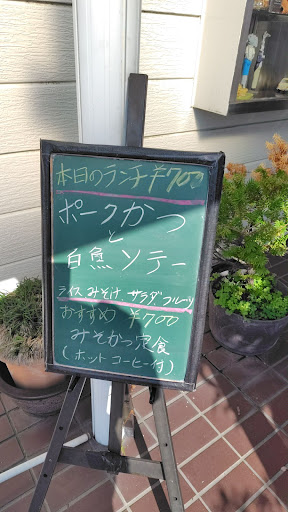 本日のランチ ¥700
ポークかつ
と
白魚ソテー
ライス みそ汁 サラダ フルーツ
おすすめ ¥700
みそかつ定食
(ホットコーヒー付)